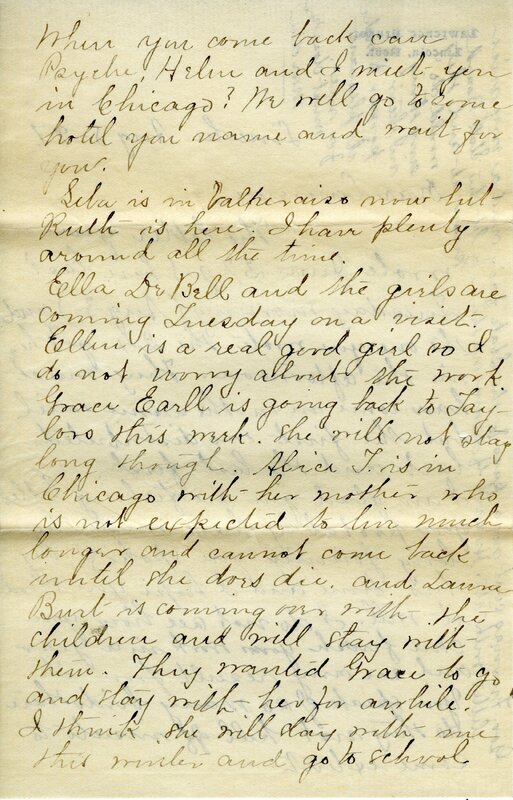 When you come back can
Psyche, Helen and I meet you
in Chicago? We will go to some
hotel you name and wait for
you.
Leba is in Valparaiso now but
Ruth is here. I have plenty
around all the time.
Ella De Bell and the girls are
coming Tuesday on a visit.
Ellen is a real good girl so I
do not worry about the work
Grace Earll is going back to Tay-
lors this week. She will not stay
long though. Alice T. is in
Chicago with her mother who
is not expected to live much
longer and cannot come back
until she does die. and Laura
Burt is coming over with the
children and will stay with
them. They wanted Grace to go
and stay with her for awhile.
I think she will stay with me
this winter and go to school